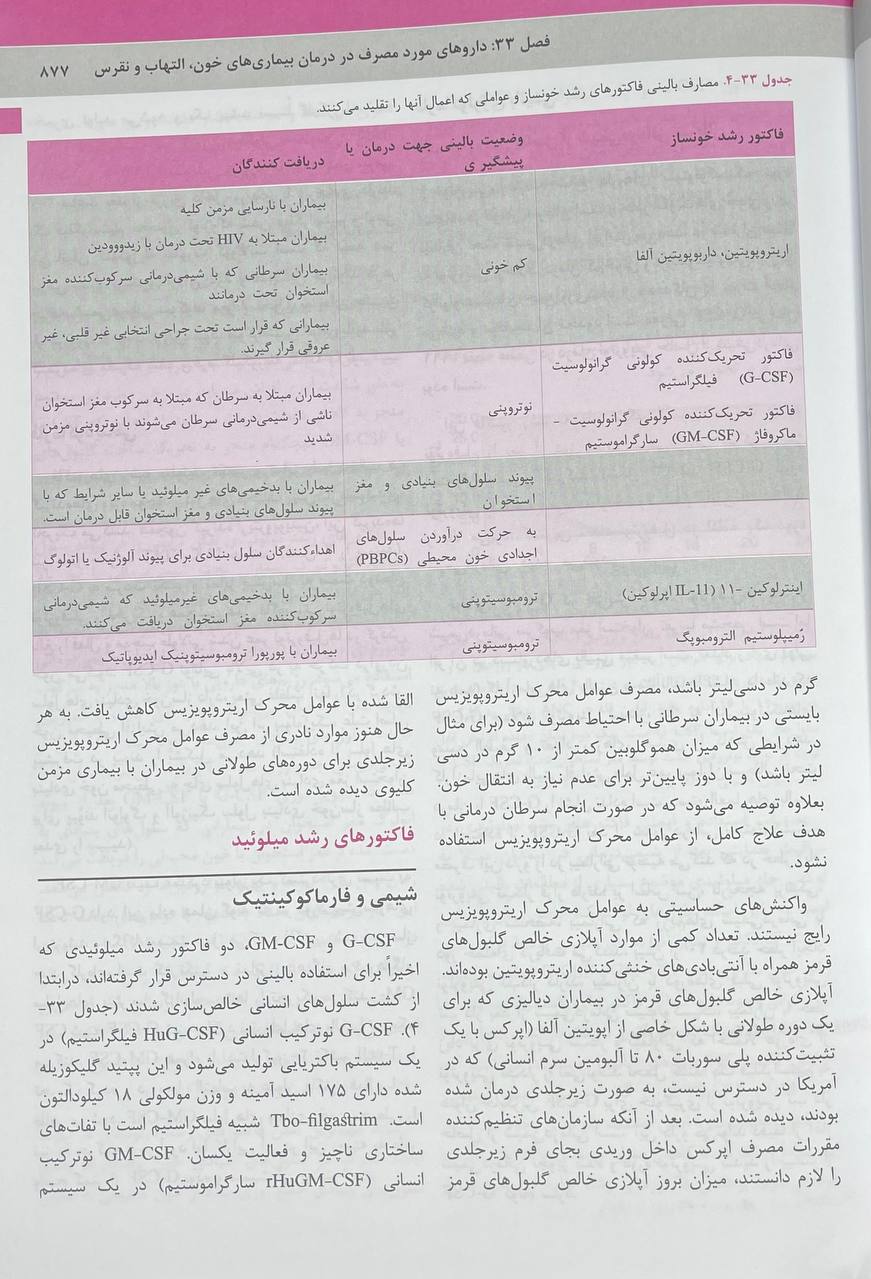 فصل ۳۳: داروهای مورد مصرف در درمان بیماری‌های خون، التهاب و نقرس ۸۷۷
جدول ۳۳-۴. مصارف بالینی فاکتورهای رشد خونساز و عواملی که اعمال آنها را تقلید می‌کنند.
فاکتور رشد خونساز
وضعیت بالینی جهت درمان یا
پیشگیر ی
دریافت کنندگان
اریتروپویتین، داربوپویتین آلفا
کم خونی
بیماران با نارسایی مزمن کلیه
بیماران مبتلا به HIV تحت درمان با زیدووودین
بیماران سرطانی که با شیمی‌درمانی سرکوب‌کننده مغز
استخوان تحت درمانند
بیمارانی که قرار است تحت جراحی انتخابی غیر قلبی، غیر
عروقی قرار گیرند.
فاکتور تحریک‌کننده کولونی گرانولوسیت
(G-CSF) فیلگراستیم
فاکتور تحریک‌کننده کولونی گرانولوسیت -
ماکروفاژ (GM-CSF) سارگراموستیم
نوتروپنی
بیماران مبتلا به سرطان که مبتلا به سرکوب مغز استخوان
ناشی از شیمی‌درمانی سرطان می‌شوند با نوتروپنی مزمن
شدید
پیوند سلول‌های بنیادی و مغز
استخوان
بیماران با بدخیمی‌های غیر میلوئید یا سایر شرایط که با
پیوند سلول‌های بنیادی و مغز استخوان قابل درمان است.
به حرکت درآوردن سلول‌های
اجدادی خون محیطی (PBPCs)
اهداءکنندگان سلول بنیادی برای پیوند آلوژنیک یا اتولوگ
اینترلوکین -۱۱ (IL-11 اپرلوکین)
ترومبوسیتوپنی
بیماران با بدخیمی‌های غیرمیلوئید که شیمی‌درمانی
سرکوب‌کننده مغز استخوان دریافت می‌کنند.
رُمیپلوستیم الترومبوپگ
ترومبوسیتوپنی
بیماران با پورپورا ترومبوسیتوپنیک ایدیوپاتیک
گرم در دسی‌لیتر باشد، مصرف عوامل محرک اریتروپویزیس
بایستی در بیماران سرطانی با احتیاط مصرف شود (برای مثال
در شرایطی که میزان هموگلوبین کمتر از ۱۰ گرم در دسی
لیتر باشد) و با دوز پایین‌تر برای عدم نیاز به انتقال خون.
بعلاوه توصیه می‌شود که در صورت انجام سرطان درمانی با
هدف علاج کامل، از عوامل محرک اریتروپویزیس استفاده
نشود.
واکنش‌های حساسیتی به عوامل محرک اریتروپویزیس
رایج نیستند. تعداد کمی از موارد آپلازی خالص گلبول‌های
قرمز همراه با آنتی‌بادی‌های خنثی‌کننده اریتروپویتین بوده‌اند.
آپلازی خالص گلبول‌های قرمز در بیماران دیالیزی که برای
یک دوره طولانی با شکل خاصی از اپویتین آلفا (اپرکس با یک
تثبیت‌کننده پلی سوربات ۸۰ تا آلبومین سرم انسانی) که در
آمریکا در دسترس نیست، به صورت زیرجلدی درمان شده
بودند، دیده شده است. بعد از آنکه سازمان‌های تنظیم‌کننده
مقررات مصرف اپرکس داخل وریدی بجای فرم زیرجلدی
را لازم دانستند، میزان بروز آپلازی خالص گلبول‌های قرمز
القا شده با عوامل محرک اریتروپویزیس کاهش یافت. به هر
حال هنوز موارد نادری از مصرف عوامل محرک اریتروپویزیس
زیرجلدی برای دوره‌های طولانی در بیماران با بیماری مزمن
کلیوی دیده شده است.
فاکتورهای رشد میلوئید
شیمی و فارماکوکینتیک
G-CSF و GM-CSF، دو فاکتور رشد میلوئیدی که
اخیراً برای استفاده بالینی در دسترس قرار گرفته‌اند، درابتدا
از کشت سلول‌های انسانی خالص‌سازی شدند (جدول ۳۳-
۴). G-CSF نوترکیب انسانی (HuG-CSF فیلگراستیم) در
یک سیستم باکتریایی تولید می‌شود و این پپتید گلیکوزیله
شده دارای ۱۷۵ اسید آمینه و وزن مولکولی ۱۸ کیلودالتون
است. Tbo-filgastrim شبیه فیلگراستیم است با تفات‌های
ساختاری ناچیز و فعالیت یکسان. GM-CSF نوترکیب
انسانی (rHuGM-CSF سارگراموستیم) در یک سیستم